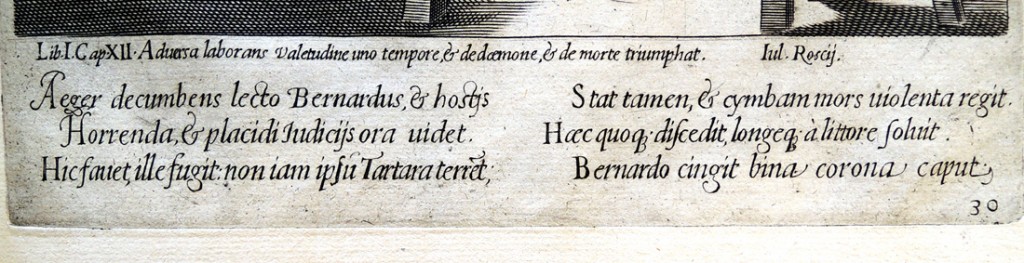 Lib.I. Cap XII. Aduersa laborans valetudine uno tempore, & de dæmone, & de morte triumphat. Iul. Roscij.
Aeger decumbens lecto Bernardus, & hostis
Horrenda, & placidi Iudicijs ora uidet.
Hic fauet, ille fugit: non iam ipsū Tartara terrēt;
Stat tamen, & cymbam mors uiolenta regit.
Hæc quoq; discedit, longeq; à littore soluit.
Bernardo cingit bina corona caput;
30